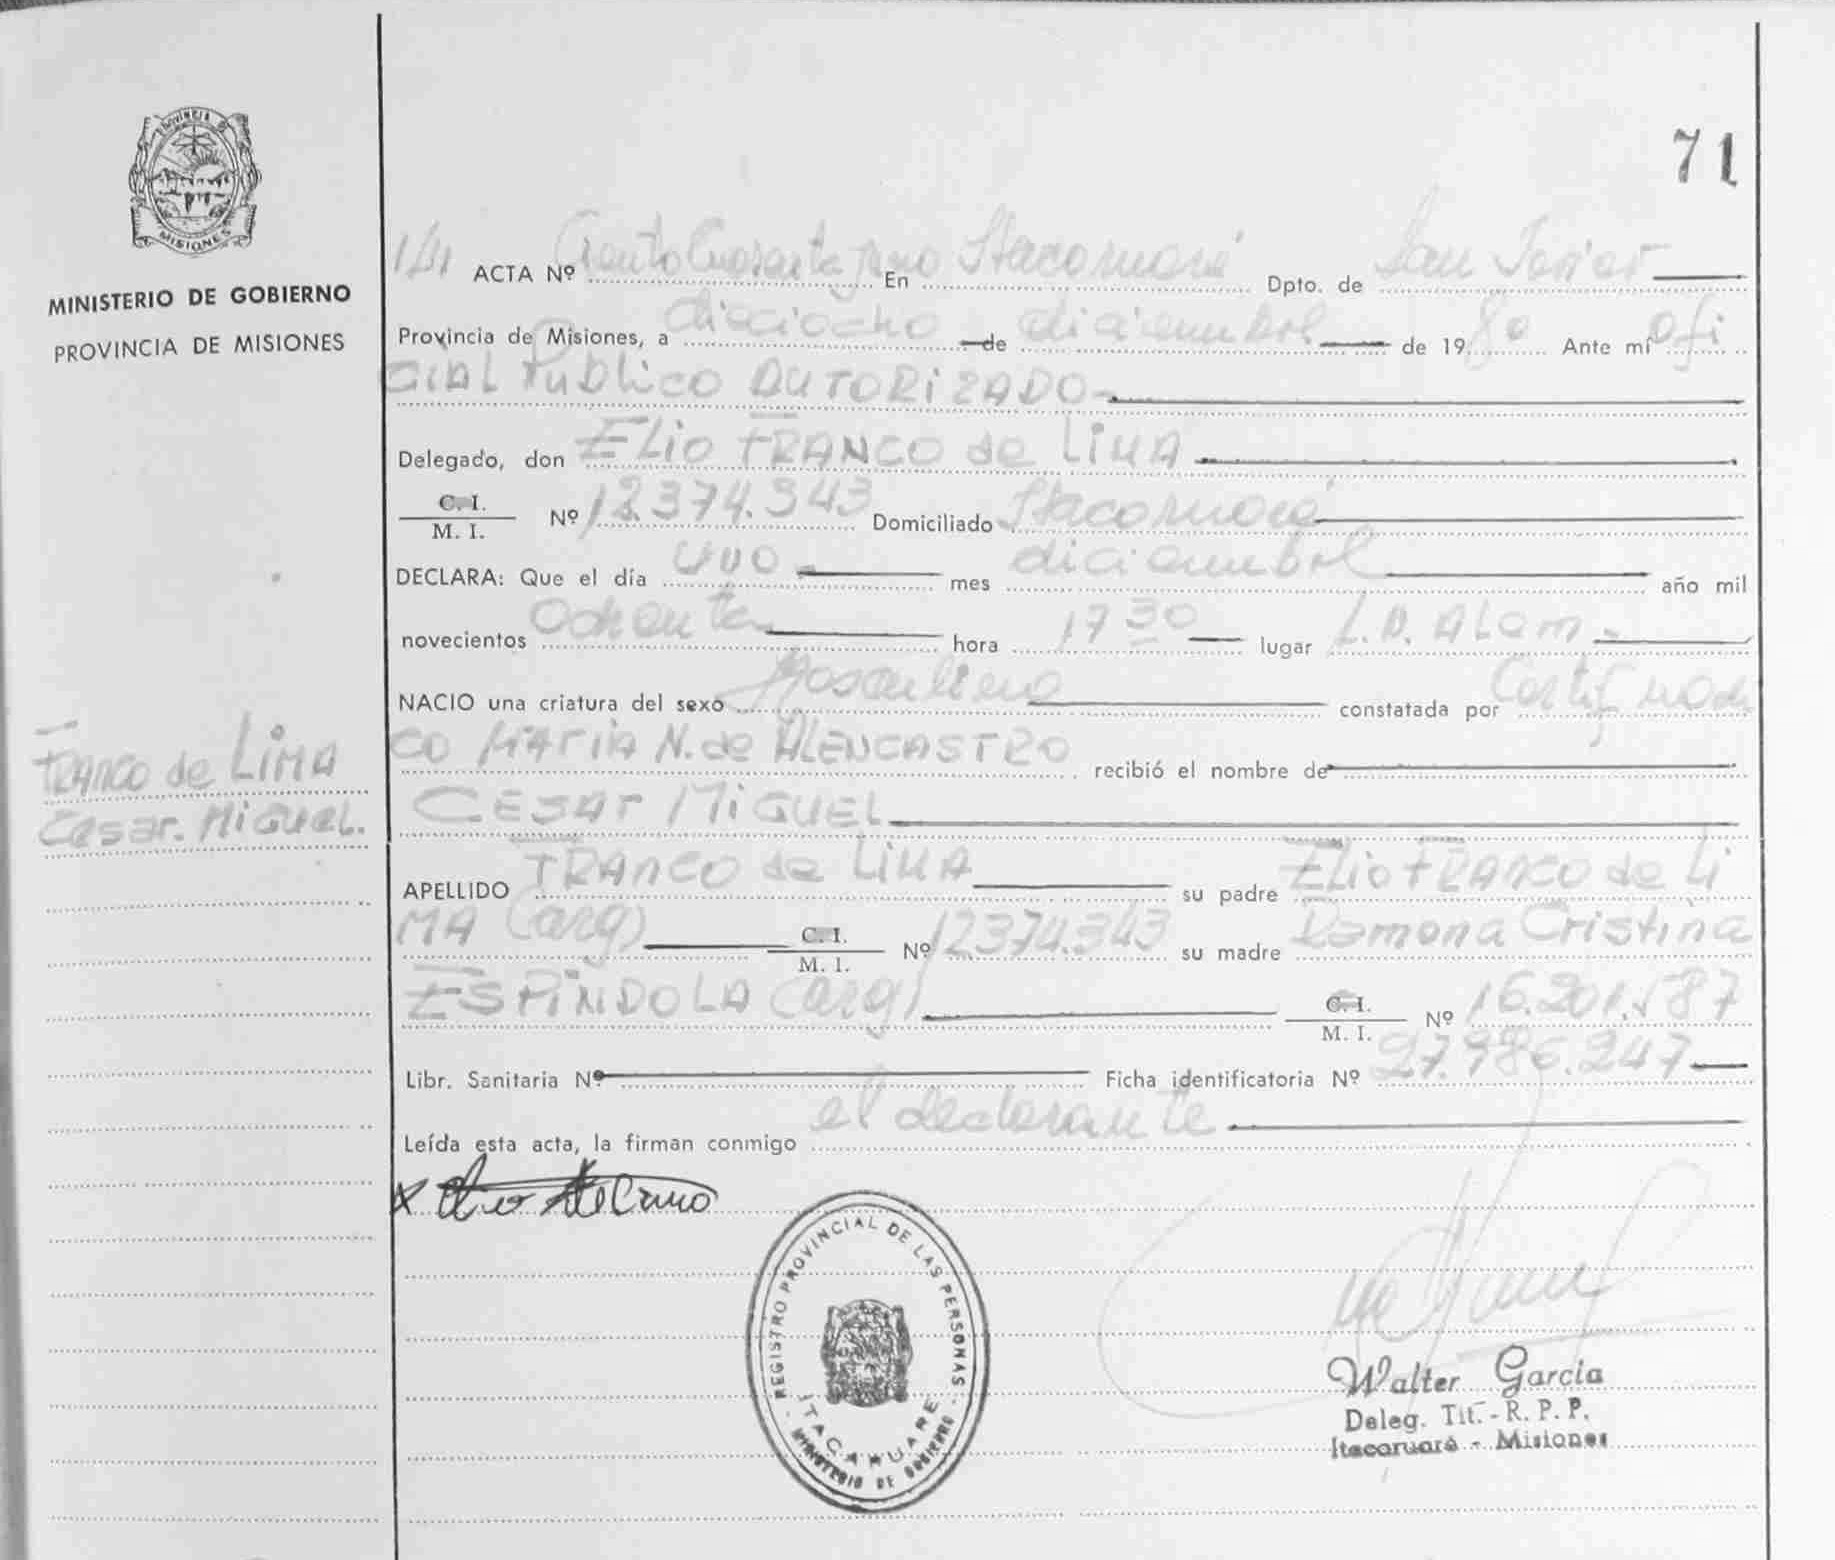 71
PROVINCIA DE
MISIONES
MINISTERIO DE GOBIERNO
PROVINCIA DE MISIONES
FRANCO de LIMA
Cesar. MIGUEL.
141 ACTA Nº Ciento Cuarenta y uno En Itacaruaré Dpto. de San Javier
Provincia de Misiones, a dieciocho de diciembre de 1980 Ante mí Ofi
CIAL Público AUTORIZADO
Delegado, don ELIO FRANCO de LIMA
C. I. / M. I. Nº 12.374.343 Domiciliado Itacaruaré
DECLARA: Que el día uno mes diciembre año mil
novecientos Ochenta hora 17 30 lugar L.N. ALem.
NACIO una criatura del sexo Masculino constatada por Certif medi
co MARIA N. de ALENCASTRO recibió el nombre de
CESAR MIGUEL
APELLIDO FRANCO de LIMA su padre Elio FRANCO de Li
MA (arg) C. I. / M. I. Nº 12374.343 su madre Ramona Cristina
ESPINDOLA (arg) C. I. / M. I. Nº 16.201.587
Libr. Sanitaria Nº Ficha identificatoria Nº 27.986.247
Leída esta acta, la firman conmigo el declarante
REGISTRO PROVINCIAL DE LAS PERSONAS
ITACARUARE
MINISTERIO DE GOBIERNO
Walter Garcia
Deleg. Tit. - R. P. P.
Itacaruaré - Misiones